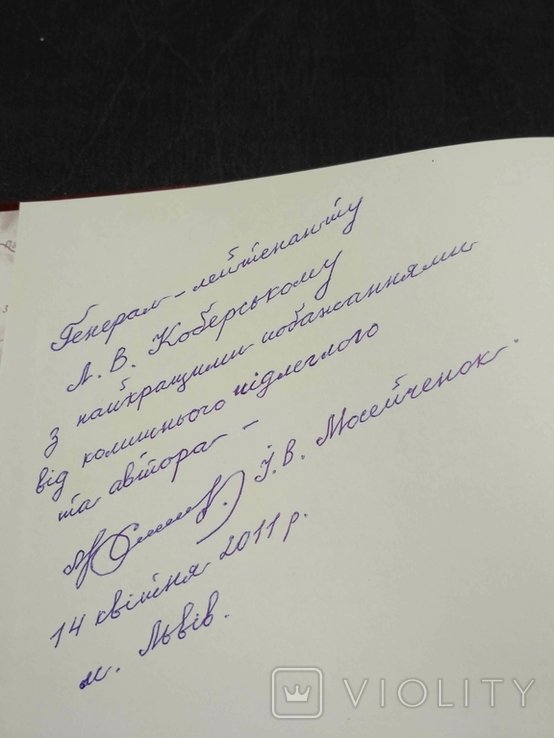 Генерал-лейтенанту
Л. В. Коберському
з найкращими побажаннями
від колишнього підлеглого
та автора –
І. В. Мосейченок
14 квітня 2011 р.
м. Львів.
VIOLITY